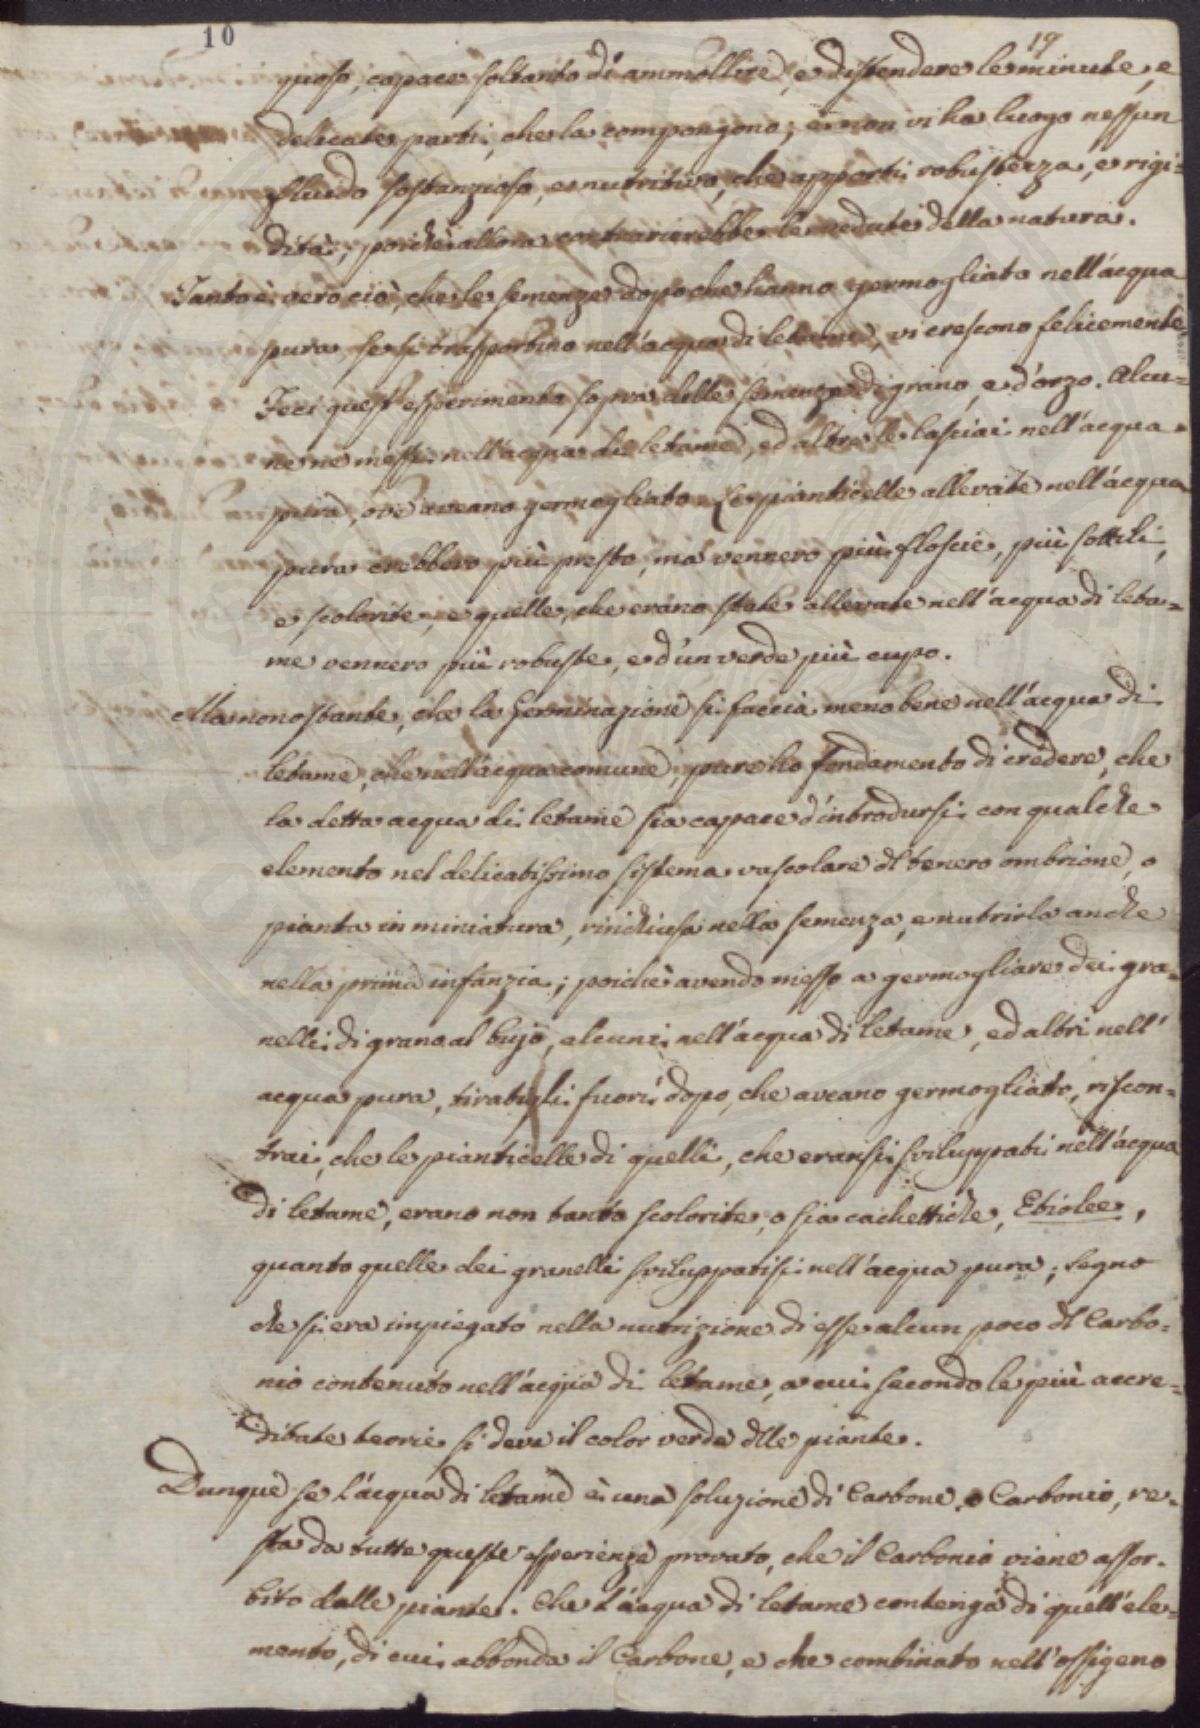 10
19
quoso, capace soltanto di ammollire, e distendere le minute, e
delicate parti, che la compongono; e non vi ha luogo nessun
fluido sostanzioso, e nutritivo, che apporti robustezza, e rigi=
dità, poichè allora contrarierebbe le vedute della natura.
Tanto è vero ciò, che le semenze dopo che hanno germogliato nell'acqua
pura se si trasportino nell'acqua di letame, vi crescono felicemente.
Feci quest'esperimento sopra delle semenze di grano, e d'orzo. Alcu=
ne ne messi nell'acqua di letame, ed altre le lasciai nell'acqua
pura, ove aveano germogliato. Le pianticelle allevate nell'acqua
pura crebbero più presto, ma vennero più floscie, più sottili,
e scolorite, e quelle, che erano state allevate nell'acqua di leta=
me vennero più robuste, e d'un verde più cupo.
Ma nonostante, che la Germinazione si faccia meno bene nell'acqua di
letame, che nell'acqua comune, pure ho fondamento di credere, che
la detta acqua di letame sia capace d'introdursi con qualche
elemento nel delicatissimo sistema vascolare dl tenero ombrione, o
pianta in miniatura, rinchiusa nella semenza, e nutrirla anche
nella prima infanzia; poichè avendo messo a germogliare dei gra=
nelli di grano al bujo, alcuni nell'acqua di letame, ed altri nell'
acqua pura, tiratigli fuori dopo, che aveano germogliato, riscon=
trai, che le pianticelle di quelli, che eransi sviluppati nell'acqua
di letame, erano non tanto scolorite, o sia cachettiche, Etiolee,
quanto quelle dei granelli sviluppatisi nell'acqua pura; segno
che si era impiegato nella nutrizione di esse alcun poco dl Carbo=
nio contenuto nell'acqua di letame, a cui secondo le più accre=
ditate teorie si deve il color verde dlle piante.
Dunque se l'acqua di letame è una soluzione di Carbone, o Carbonio, re=
sta da tutte queste esperienze provato, che il Carbonio viene assor=
bito dalle piante. Che l'acqua di letame contenga di quell'ele=
mento, di cui abbonda il Carbone, e che combinato nell'ossigeno